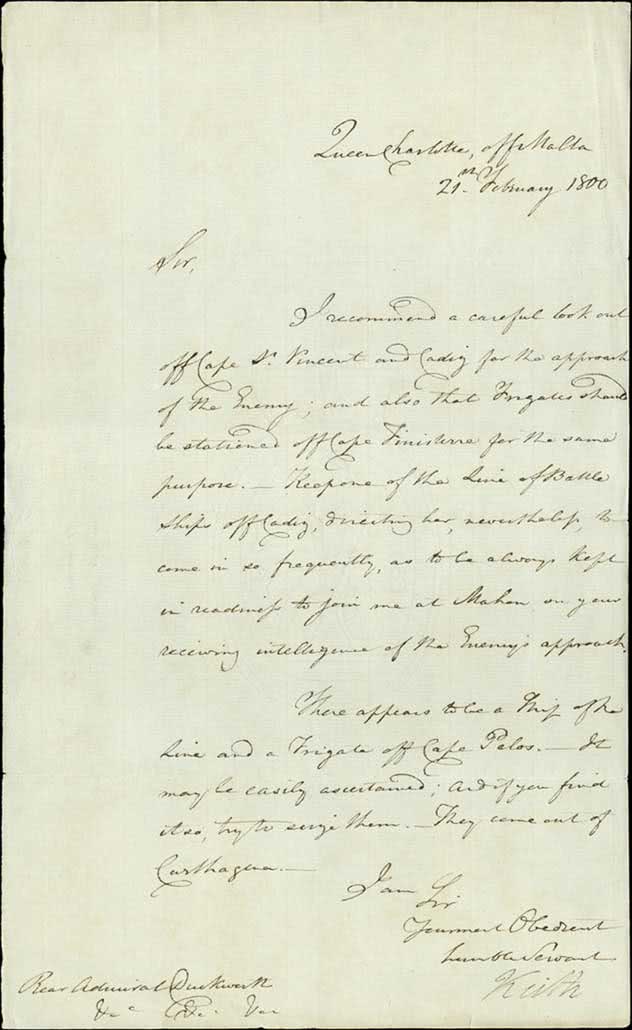 Queen Charlotte, off Malta
21st February 1800
Sir,
I recommend a careful look out
off Cape St. Vincent and Cadiz for the approach
of the Enemy; and also that Frigates should
be stationed off Cape Finisterre for the same
purpose. — Keep one of the Line of Battle
Ships off Cadiz, directing her, nevertheless to
come in so frequently, as to be always kept
in readiness to join me at Mahon on your
receiving intelligence of the Enemy's approach.
There appears to be a Ship of the
Line and a Frigate off Cape Palos. — It
may be easily ascertained; and if you find
it so, try to seize them. — They come out of
Carthagena. —
I am Sir
Your most Obedient
humble Servant
Keith
Rear Admiral Duckworth
&c &c &c